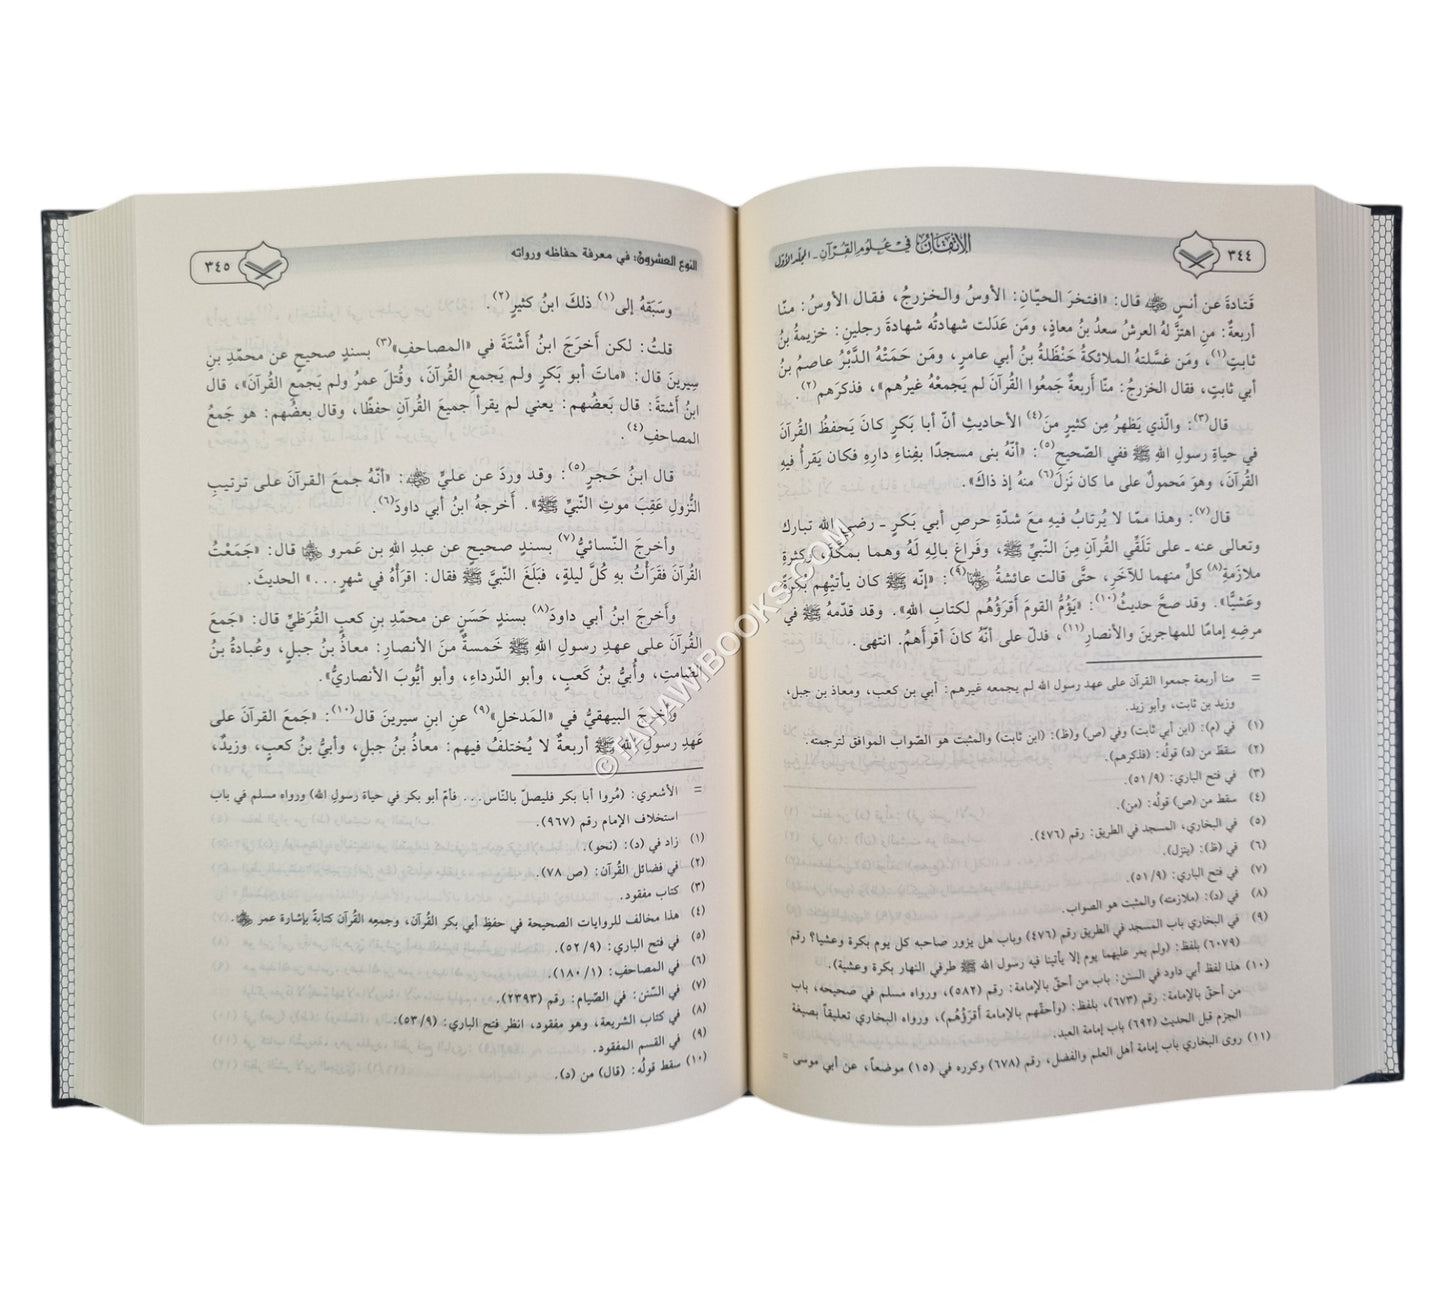 ٣٤٤
الإتقان في علوم القرآن ـ المجلد الأول
قَتادَةَ عن أنسٍ ﷺ قال: «افتخرَ الحيّانِ: الأوسُ والخزرجُ، فقال الأوسُ: منّا
أربعةٌ: منِ اهتزَّ لهُ العرشُ سعدُ بنُ معاذٍ، ومَن عَدَلت شهادتُه شهادةَ رجلينِ: خزيمةُ بنُ
ثابتٍ(١)، ومَن غسَّلتهُ الملائكةُ حَنْظَلةُ بنُ أبي عامرٍ، ومَن حَمَتْهُ الدَّبْرُ عاصمُ بنُ
أبي ثابتٍ، فقال الخزرجُ: منّا أربعةٌ جَمعُوا القُرآنَ لم يَجمعْهُ غيرُهم»، فذكرَهم(٢).
قال(٣): والّذي يَظهرُ مِن كثيرٍ منَ(٤) الأحاديثِ أنّ أبا بَكرٍ كانَ يَحفظُ القُرآنَ
في حياةِ رسولِ اللهِ ﷺ ففي الصّحيحِ(٥): «أنّهُ بنى مسجدًا بفِناءِ دارِهِ فكان يَقرأُ فيهِ
القُرآنَ، وهوَ مَحمولٌ على ما كان نَزَلَ(٦) منهُ إذ ذاكَ».
قال(٧): وهذا ممّا لا يُرتابُ فيهِ معَ شدّةِ حرصِ أبي بَكرٍ ـ رضي الله تبارك
وتعالى عنه ـ على تَلَقِّي القُرآنِ مِنَ النّبيِّ ﷺ، وفَراغِ بالِهِ لَهُ وهما بمكّةَ، وكثرةِ
ملازَمةِ(٨) كلٍّ منهما للآخَرِ، حتَّى قالت عائشةُ(٩): «إنّه ﷺ كان يأتيهِم بُكرةً
وعَشيًّا». وقد صحَّ حديثُ(١٠): «يَؤُمُّ القومَ أقرَؤُهُم لكتابِ اللهِ». وقد قدّمهُ ﷺ في
مرضِهِ إمامًا للمهاجرينَ والأنصارِ(١١)، فدلّ على أنّهُ كانَ أقرأَهُمُ. انتهى.
= منا أربعة جمعوا القرآن على عهد رسول الله لم يجمعه غيرهم: أبي بن كعب، ومعاذ بن جبل،
وزيد بن ثابت، وأبو زيد.
(١) في (م): (ابن أبي ثابت) وفي (ص) و(ظ): (ابن ثابت) والمثبت هو الصّواب الموافق لترجمته.
(٢) سقط من (د) قولُه: (فذكرهم).
(٣) في فتح الباري: (٥١/٩).
(٤) سقط من (ص) قولُه: (من).
(٥) في البخاري، المسجد في الطريق: رقم (٤٧٦).
(٦) في (ظ): (ينزل).
(٧) في فتح الباري: (٥١/٩).
(٨) في (د): (ملازمته) والمثبت هو الصواب.
(٩) في البخاري باب المسجد في الطريق رقم (٤٧٦) وباب هل يزور صاحبه كل يوم بكرة وعشيا؟ رقم
(٦٠٧٩) بلفظ: (ولم يمر عليهما يوم إلا يأتينا فيه رسول الله ﷺ طرفي النهار بكرة وعشية).
(١٠) هذا لفظ أبي داود في السنن: باب من أحقّ بالإمامة: رقم (٥٨٢)، ورواه مسلم في صحيحه، باب
من أحقّ بالإمامة: رقم (٦٧٣)، بلفظ: (وأحقّهم بالإمامة أقرَؤُهُم)، ورواه البخاري تعليقاً بصيغة
الجزم قبل الحديث (٦٩٢) باب إمامة العبد.
(١١) روى البخاري باب إمامة أهل العلم والفضل، رقم (٦٧٨) وكرره في (١٥) موضعاً، عن أبي موسى =
النوع العشرون: في معرفة حفاظه ورواته
٣٤٥
وسَبَقهُ إلى(١) ذلكَ ابنُ كثيرٍ(٢).
قلتُ: لكن أَخرَجَ ابنُ أَشْتَةَ في «المصاحفِ»(٣) بسندٍ صحيحٍ عن محمّدِ بنِ
سِيرينَ قال: «ماتَ أبو بَكرٍ ولم يَجمعِ القُرآنَ، وقُتلَ عمرُ ولم يَجمعِ القُرآنَ»، قال
ابنُ أَشتةَ: قال بَعضُهم: يعني لم يقرأ جميعَ القُرآنِ حفظًا، وقال بعضُهم: هو جَمعُ
المصاحفِ(٤).
قال ابنُ حَجرٍ(٥): وقد وردَ عن عليٍّ: «أنّهُ جمعَ القرآنَ على ترتيبِ
النُّزولِ عَقِبَ موتِ النّبيِّ ﷺ». أَخرجهُ ابنُ أبي داودَ(٦).
وأخرجَ النّسائيُّ(٧) بسندٍ صحيحٍ عن عبدِ اللهِ بنِ عَمرو قال: «جَمَعْتُ
القُرآنَ فقَرَأْتُ بهِ كُلَّ ليلةٍ، فبَلَغَ النّبيَّ ﷺ فقال: اقرَأْهُ في شهرٍ...» الحديثَ.
وأَخرجَ ابنُ أبي داودَ(٨) بسندٍ حَسَنٍ عن محمّدِ بنِ كعبٍ القُرَظيِّ قال: «جَمعَ
القُرآنَ على عهدِ رسولِ اللهِ ﷺ خَمسةٌ منَ الأنصارِ: معاذُ بنُ جبلٍ، وعُبادةُ بنُ
الصّامتِ، وأُبيُّ بنُ كَعبٍ، وأبو الدّرداءِ، وأبو أيُّوبَ الأنصاريُّ».
وأخرجَ البيهقيُّ في «المَدخلِ»(٩) عنِ ابنِ سيرينَ قال(١٠): «جَمعَ القرآنَ على
عَهدِ رسولِ اللهِ ﷺ أربعةٌ لا يُختلفُ فيهم: معاذُ بنُ جبلٍ، وأبيُّ بنُ كعبٍ، وزيدٌ،
= الأشعري: (مُروا أبا بكر فليصلّ بالنّاس... فأمّ أبو بكر في حياة رسولِ الله) ورواه مسلم في باب
استخلاف الإمام رقم (٩٦٧).
(١) زاد في (د): (نحو).
(٢) في فضائل القُرآن: (ص ٧٨).
(٣) كتاب مفقود.
(٤) هذا مخالف للروايات الصحيحة في حفظ أبي بكر القُرآن، وجمعِه القُرآن كتابةً بإشارة عمر.
(٥) في فتح الباري: (٥٢/٩).
(٦) في المصاحف: (١٨٠/١).
(٧) في السّنن: في الصّيام: رقم (٢٣٩٣).
(٨) في كتاب الشريعة، وهو مفقود، انظر فتح الباري: (٥٣/٩).
(٩) في القسم المفقود.
(١٠) سقط قولُه: (قال) من (د).
© TAHAWIBOOKS.COM